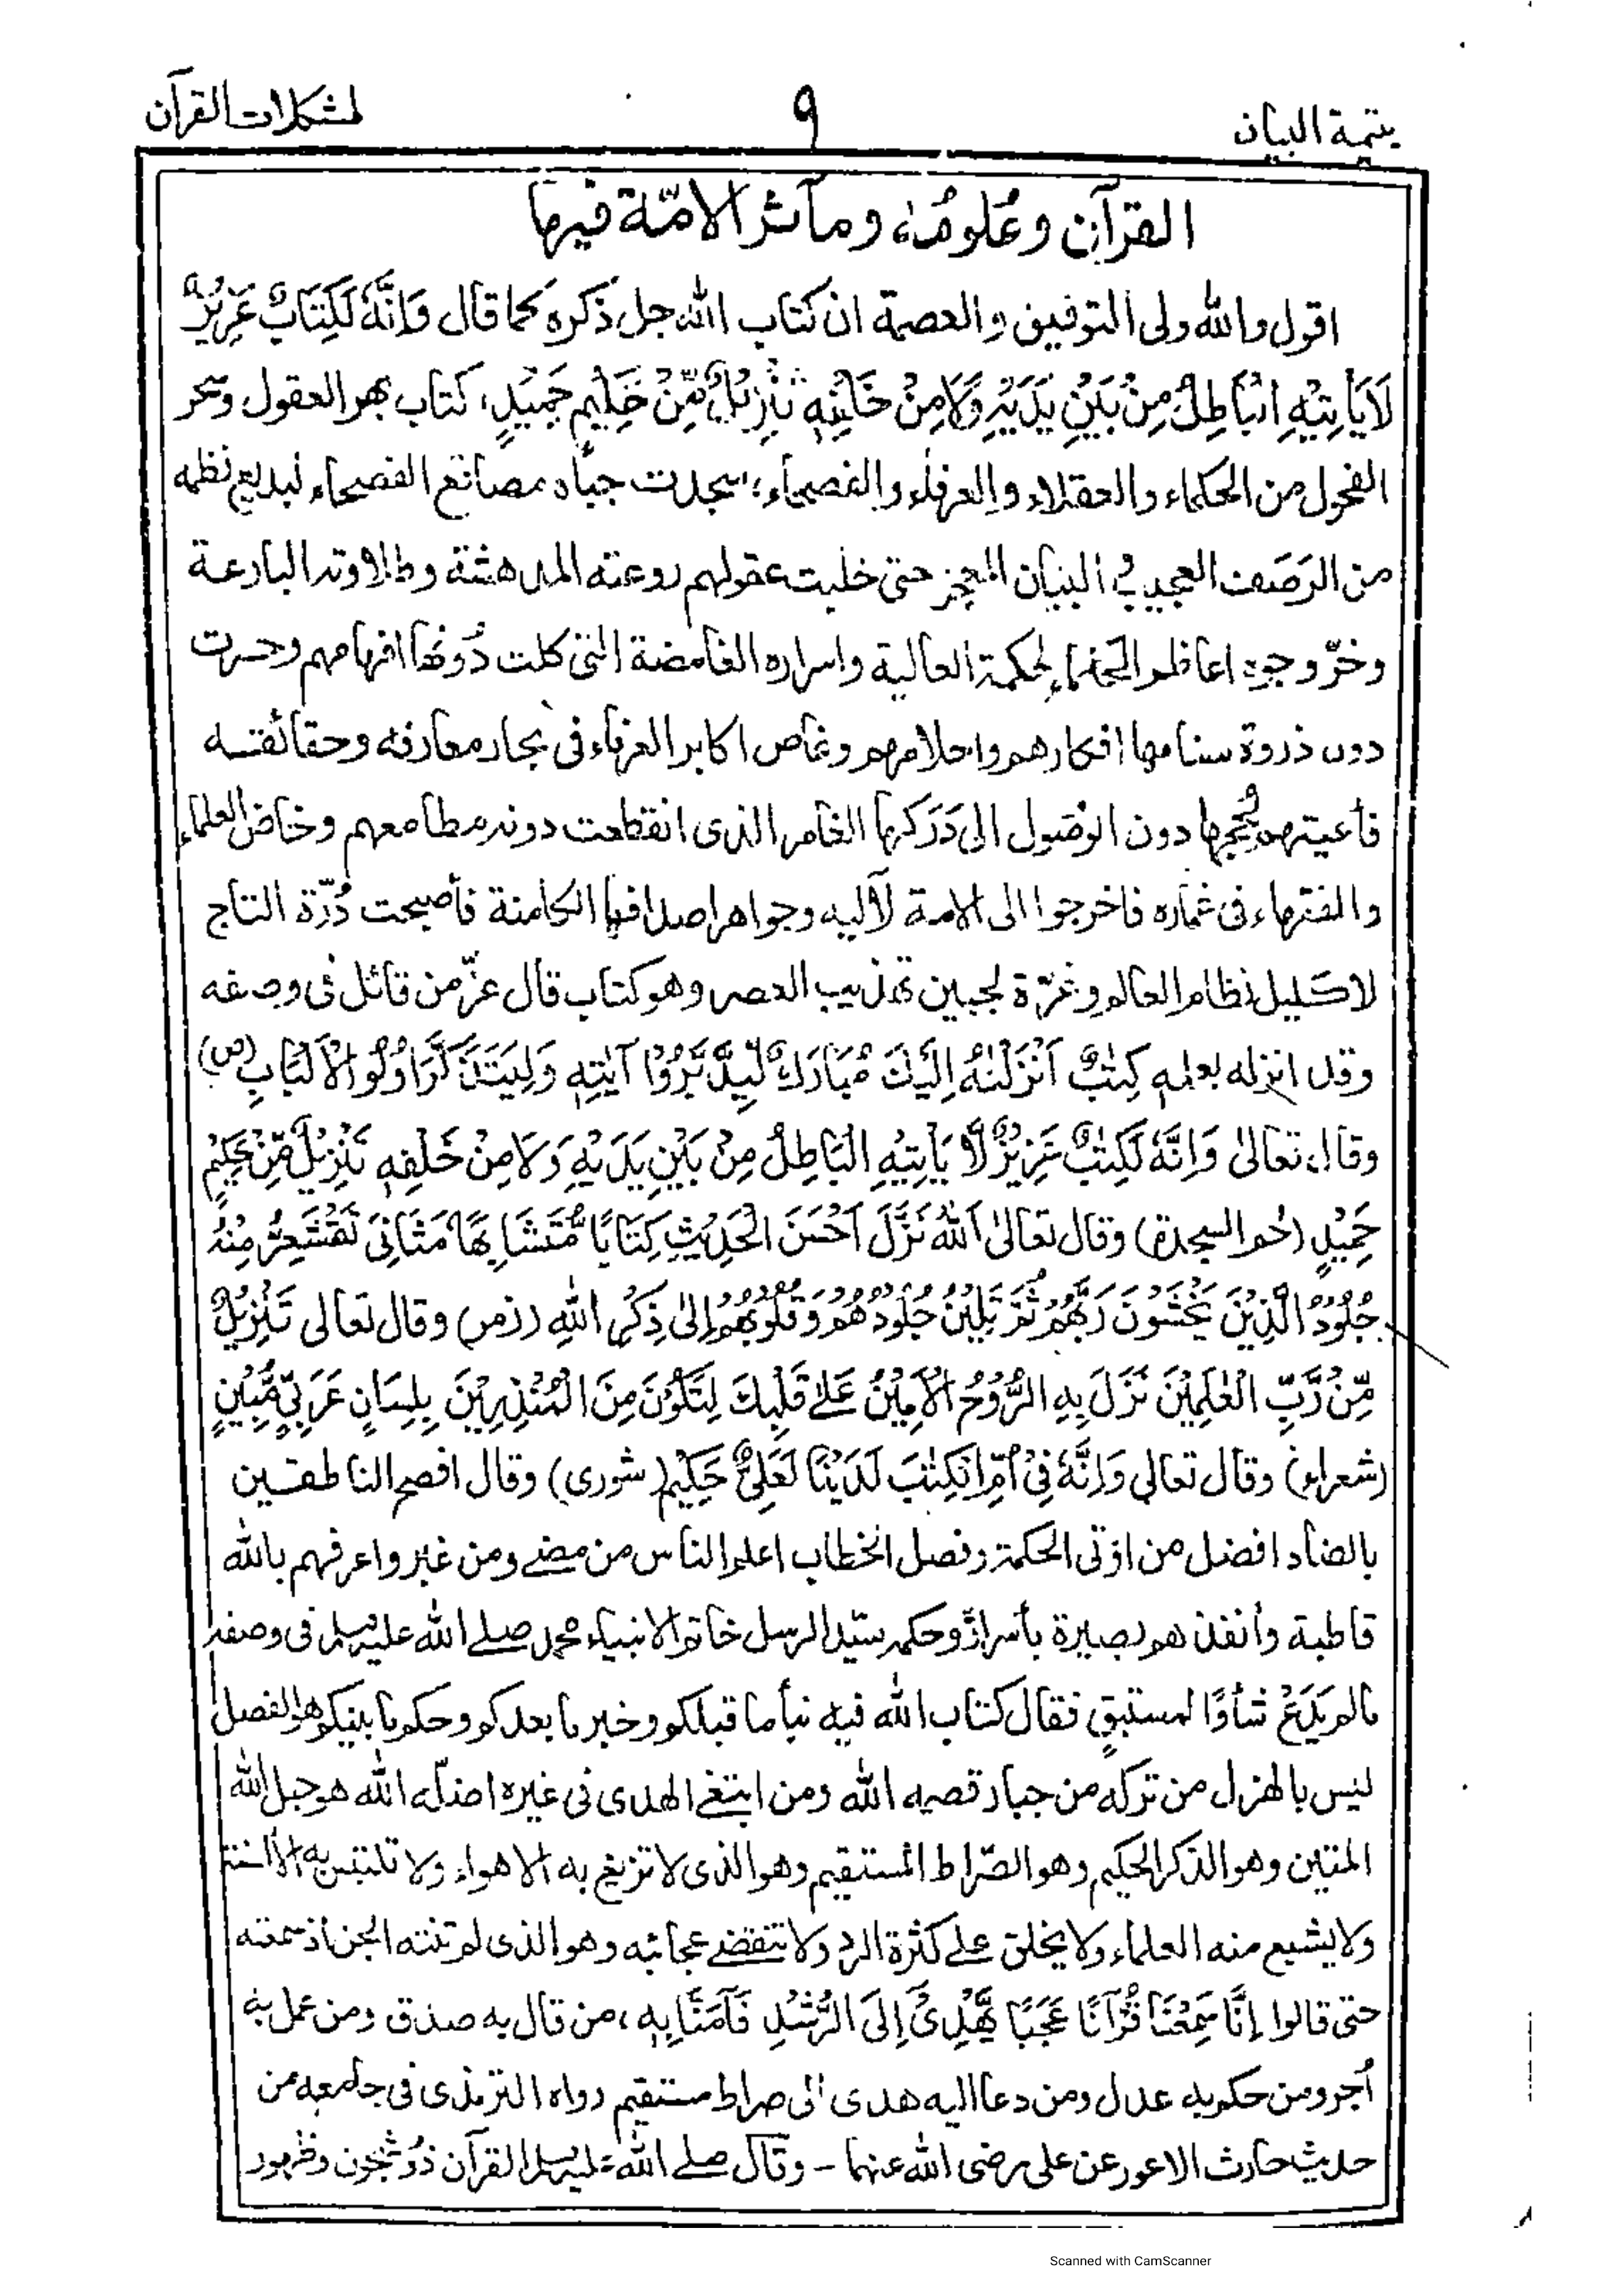 يتيمة البيان
٩
لمشكلات القرآن
القرآن وعُلومُه، ومآثر الامّة فيها
اقول والله ولی التوفيق والعصمة ان كتاب الله جل ذكره كما قال وَاِنَّهٗ لَكِتَابٌ عَزِيْزٌ
لَا يَأْتِيْهِ الْبَاطِلُ مِنْ بَيْنِ يَدَيْهِ وَلَا مِنْ خَلْفِهٖ تَنْزِيْلٌ مِّنْ حَكِيْمٍ حَمِيْدٍ، كتاب بهر العقول وسحر
الفحول من الحكماء والعقلاء والعرفاء والفصحاء، سجدت جباه مصاقع الفصحاء لبديع نظمه
من الرَصَف العجيب في البنيان المعجز حتى خلبت عقولهم روعته المدهشة وطلاوته البارعة
وخرّ وجوه اعاظم الحكماء لحكمة العالية واسراره الغامضة التى كلت دُونها افهامهم وحسرت
دون ذروة سنامها افكارهم واحلامهم وغاص اكابر العرفاء فى بحار معارفه وحقائقه
فأعيتهم لُججها دون الوصول الى دَرَكها الغامر الذى انقطعت دونه مطامعهم وخاض العلماء
والفقهاء فى غماره فاخرجوا الى الامة لآليه وجواهر اصدافها الكامنة فأصبحت دُرّة التاج
لاكليل نظام العالم وغرّة لجبين تهذيب العصر وهو كتاب قال عزّ من قائل فى وصفه
وقد انزله بعلمه كِتٰبٌ اَنْزَلْنٰهُ اِلَيْكَ مُبَارَكٌ لِّيَدَّبَّرُوْا آيٰتِهٖ وَلِيَتَذَكَّرَ اُولُو الْاَلْبَابِ (ص)
وقال تعالىٰ وَاِنَّهٗ لَكِتٰبٌ عَزِيْزٌ لَّا يَأْتِيْهِ الْبَاطِلُ مِنْ بَيْنِ يَدَيْهِ وَلَا مِنْ خَلْفِهٖ تَنْزِيْلٌ مِّنْ حَكِيْمٍ
حَمِيْدٍ (حٰم السجدة) وقال تعالىٰ اَللهُ نَزَّلَ اَحْسَنَ الْحَدِيْثِ كِتَابًا مُّتَشَابِهًا مَّثَانِىَ تَقْشَعِرُّ مِنْهُ
جُلُوْدُ الَّذِيْنَ يَخْشَوْنَ رَبَّهُمْ ثُمَّ تَلِيْنُ جُلُوْدُهُمْ وَقُلُوْبُهُمْ اِلٰى ذِكْرِ اللهِ (زمر) وقال تعالى تَنْزِيْلٌ
مِّنْ رَّبِّ الْعٰلَمِيْنَ نَزَلَ بِهِ الرُّوْحُ الْاَمِيْنُ عَلٰے قَلْبِكَ لِتَكُوْنَ مِنَ الْمُنْذِرِيْنَ بِلِسَانٍ عَرَبِيٍّ مُّبِيْنٍ
(شعراء) وقال تعالى وَاِنَّهٗ فِىْ اُمِّ الْكِتٰبِ لَدَيْنَا لَعَلِىٌّ حَكِيْمٌ (شورى) وقال افصح الناطقين
بالضاد افضل من اوتى الحكمة وفصل الخطاب اعلم الناس من مضے ومن غبر واعرفهم بالله
قاطبة وأنفذهم بصيرة بأسراره وحكمه سيّد الرسل خاتم الانبياء محمد صلے الله عليه وسلم فى وصفه
مالم يَدَعْ شأوًا لمستبقٍ فقال كتاب الله فيه نبأ ما قبلكم وخبر ما بعدكم وحكم ما بينكم هو الفصل
ليس بالهزل من تركه من جبار قصمه الله ومن ابتغے الهدى فى غيره اضلّه الله هو حبل الله
المتين وهو الذكر الحكيم وهو الصّراط المستقيم وهو الذى لا تزيغ به الاهواء ولا تلتبس به الألسنة
ولا يشبع منه العلماء ولا يخلق علے كثرة الرد ولا تنقضے عجائبه وهو الذى لم تنته الجن اذ سمعته
حتى قالوا اِنَّا سَمِعْنَا قُرْآنًا عَجَبًا يَّهْدِىْ اِلَى الرُّشْدِ فَآمَنَّا بِهٖ، من قال به صدق ومن عمل به
أُجر ومن حكم به عدل ومن دعا اليه هدى الى صراط مستقيم رواه الترمذى فى جامعه من
حديث حارث الاعور عن على رضى الله عنهما – وقال صلے الله عليه وسلم القرآن ذُو شُجون وظهور
Scanned with CamScanner